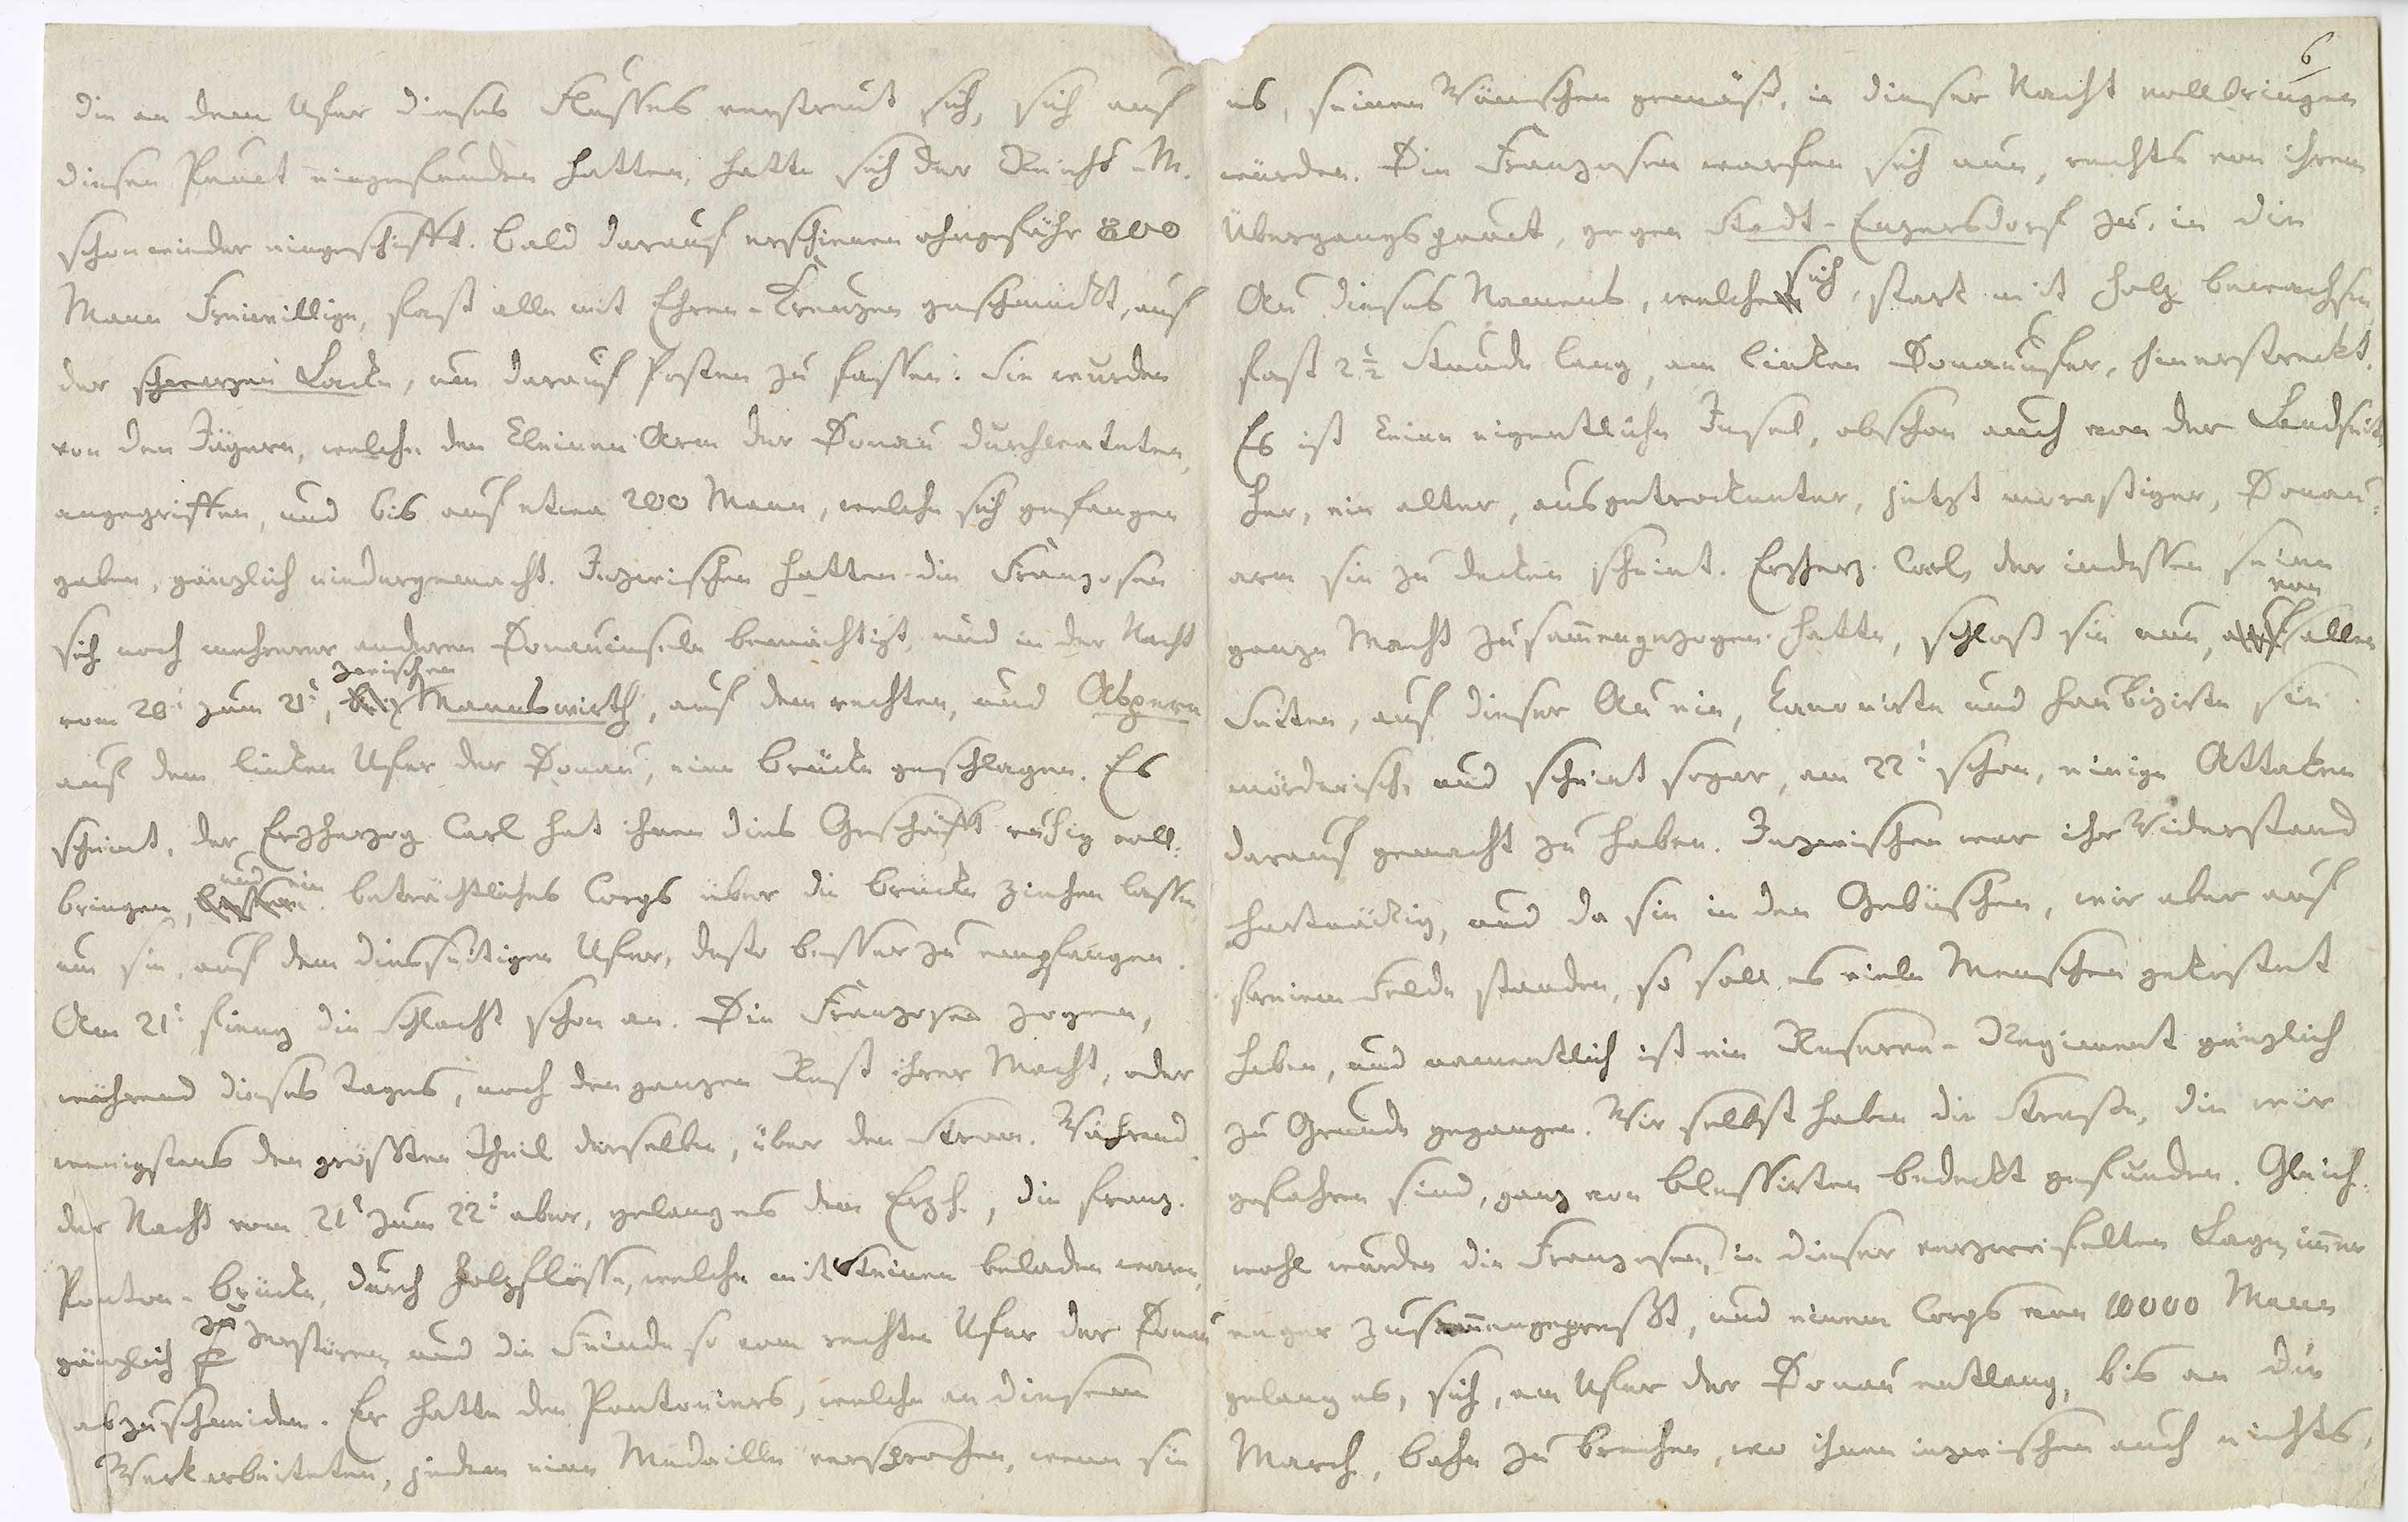 die an dem Ufer dieses Flusses verstreut sich, sich auf
diesen Punct eingefunden hatten, hatte sich der Reichs M.
schon wieder eingeschifft. Bald darauf erschienen ohngefähr 800
Mann Freiwillige, fast alle mit Ehren-Kreuzen geschmückt, auf
der schwarzen Lacke, um darauf Posten zu fassen: Sie wurden
von den Jägern, welche den kleinen Arm der Donau durchwateten,
angegriffen, und bis auf etwa 200 Mann, welche sich gefangen
gaben, gänzlich niedergemacht. Inzwischen hatten die Franzosen
sich noch mehrerer anderen Donauinseln bemächtigt, und in der Nacht
vom 20t zum 21t, zwischen Mannswirth, auf dem rechten, und Aspern
auf dem linken Ufer der Donau, eine Brücke geschlagen. Es
scheint, der Erzherzog Carl hat ihnen dies Geschäfft ruhig voll-
bringen, und ein beträchtliches Corps über die Brücke ziehen lassen
um sie, auf dem diesseitigen Ufer, desto besser zu empfangen.
Am 21t fieng die Schlacht schon an. Die Franzosen zogen,
während dieses Tages, noch den ganzen Rest ihrer Macht, oder
wenigstens den größten Theil derselben, über den Strom. Während
der Nacht vom 21t zum 22t aber, gelang es dem Erzh., die franz.
Ponton-Brücke, durch Holzflösse, welche mit Steinen beladen waren,
gänzlich zu zerstören und die Feinde so vom rechten Ufer der Donau
abzuschneiden. Er hatte den Pontoniers, welche an diesem
Werk arbeiteten, jedem eine Medaille versprochen, wenn sie
6
es, seinen Wünschen gemäß, in dieser Nacht vollbringen
würden. Die Franzosen warfen sich nun, rechts von ihrem
Übergangspunct, gegen Stadt-Enzersdorf zu, in die
Au dieses Namens, welche sich, stark mit Holz bewachsen,
fast 2½ Stunde lang, am linken Donauufer, hinerstreckt.
Es ist keine eigentliche Insel, obschon auch von der Landseite
her, ein alter, ausgetrockneter, jetzt morastiger, Donau-
arm sie zu decken scheint. Erzherz. Carl, der indessen seine
ganze Macht zusammengezogen hatte, schloß sie nun, von allen
Seiten, auf dieser Au ein, kanonirte und haubizirte sie
mörderisch, und scheint sogar, am 22t schon, einige Attaken
darauf gemacht zu haben. Inzwischen war ihr Widerstand
hartnäckig, und da sie in den Gebüschen, wir aber auf
freiem Felde standen, so soll es viele Menschen gekostet
haben, und namentlich ist ein Reserve-Regiment gänzlich
zu Grunde gegangen. Wir selbst haben die Straße, die wir
gefahren sind, ganz von Blessirten bedeckt gefunden. Gleich-
wohl wurden die Franzosen, in dieser verzweifelten Lage, immer
enger zusammengepreßt, und einem Corps von 10000 Mann
gelang es, sich, am Ufer der Donau entlang, bis an die
March, Bahn zu brechen, wo ihnen inzwischen auch nichts,